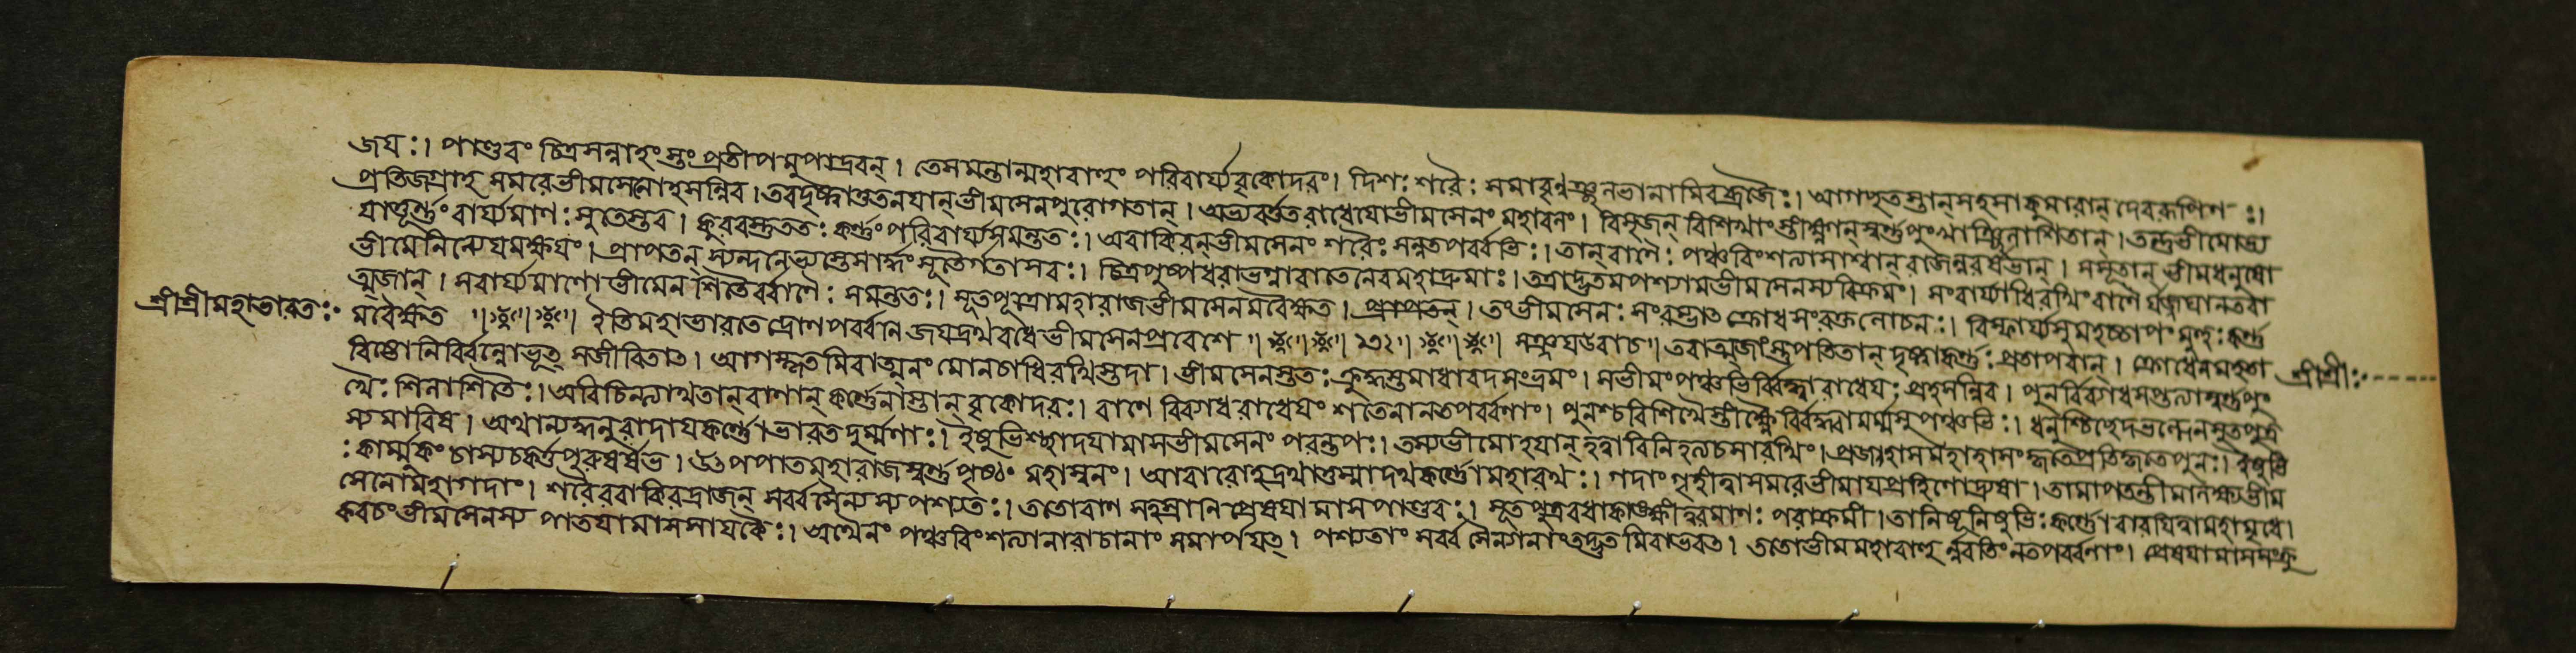 জয়ঃ। পাণ্ডবং চিত্রসন্নাহং স্তুং প্রতীপমুপাদ্রবন্। তেসমন্তান্মহাবাহুং পরিবার্য্যবৃকোদরং। দিশঃ শরৈঃ সমাবৃণ্বঞ্ছলভানামিবব্রজৈঃ। আগচ্ছতস্তান্সহসাকুমারান্ দেবরূপিণঃ।
প্রতিজগ্রাহ সমরেভীমসেনোহসন্নিব। তবদৃষ্ট্বাশুতনযান্ভীমসেনপুরোগতান্। অভ্যবর্ত্তত রাধেযোভীমসেনং মহাবলং। বিসৃজন্ বিশিখাংস্তীক্ষ্ণান্ স্বর্ণপুংখাঞ্ছিলাশিতান্। তন্তুভীমোভ্য
যাত্তূর্ণ্ণং বার্য্যমাণঃ সুতৈস্তব। কুরবস্তুততঃ কর্ণ্ণং পরিবার্য্যসমন্ততঃ। অবাকিরন্ভীমসেনং শরৈঃ সন্নতপর্ব্বভিঃ। তান্ বাণৈঃ পঞ্চবিংশত্যাসাশ্বান্ রাজন্নরর্ষভান্। সসূতান্ ভীমধনুষো
ভীমোনিন্যেযমক্ষযং। প্রাপতন্ স্যন্দনেভ্যস্তেসার্দ্ধং সূতৈর্গতাসবঃ। চিত্রপুষ্পধরাভগ্নাবাতেনেবমহাদ্রুমাঃ। তত্রাদ্ভুতমপশ্যামভীমসেনস্যবিক্রমং। সংবার্য্যাধিরথিংবাণৈর্যজ্জঘানতবা
ত্মজান্। সবার্য্যমাণোভীমেন শিতৈর্ব্বাণৈঃ সমন্ততঃ। সূতপুত্রোমহারাজভীমসেনমবৈক্ষত। তংভীমসেনঃ সংরম্ভাৎ ক্রোধসংরক্তলোচনঃ। বিস্ফার্য্যসুমহচ্চাপং মুহুঃ কর্ণ্ণ
শ্রীশ্রীমহাভারতঃ
মবৈক্ষত ॥ ইতিমহাভারতে দ্রোণপর্ব্বনি জয়দ্রথবধে ভীমসেনপ্রবেশে ॥ সঞ্জয়উবাচ॥ তবাত্মজাংস্তুপতিতান্ দৃষ্ট্বাকর্ণ্ণঃ প্রতাপবান্। ক্রোধেনমহতা
শ্রীশ্রীঃ
বিষ্টোনির্ব্বিন্নোভূত্ সজীবিতাৎ। আগস্কৃতমিবাত্মানং মেনেচাধিরথিস্তদা। ভীমসেনস্ততঃ ক্রুদ্ধস্তমাধাবদসংভ্রমং। সভীমংপঞ্চভির্ব্বিদ্ধ্বারাধেযঃ প্রহসন্নিব। পুনর্ব্বিব্যাধসপ্তত্যাস্বর্ণ্ণপুং
খৈঃ শিলাশিতৈঃ। অবিচিন্ত্যাথতান্ বাণান্ কর্ণ্ণেনাস্তান্ বৃকোদরঃ। রণে বিব্যাধরাধেযং শতেনানতপর্ব্বণাং। পুনশ্চবিশিখৈস্তীক্ষ্ণৈর্ব্বিদ্ধ্বামর্ম্মসুপঞ্চভিঃ। ধনুশ্চিচ্ছেদভল্লেনসূতপুত্র
স্যমারিষ। অথান্যদ্ধনুরাদাযকর্ণ্ণোভারতদুর্ম্মণাঃ। ইষুভিশ্ছাদযামাসভীমসেনং পরন্তপঃ। তস্যভীমোহযান্ হত্বাবিনিহত্যচসারথিং। প্রজহাসমহাহাসংকৃতেপ্রতিকৃতেপুনঃ। ইষুভি
ঃ কার্ম্মুকং চাস্যচকর্ত্তপুরুষর্ষভ। উৎপপাতমহারাজস্বর্ণ্ণপৃষ্ঠং মহাস্বনং। আবারোহদ্রথাত্তস্মাদথকর্ণ্ণোমহারথঃ। গদাং গৃহীত্বাসমরেভীমাযপ্রাহিণোদ্রুষা। তামাপতন্তীমালক্ষ্যভীম
সেনোমহাগদাং। শরৈরবাকিরদ্রাজন্ সর্ব্বসৈন্যস্যপশ্যতঃ। ততোবাণ সহস্রানি প্রেষযামাসপাণ্ডবঃ। সূতপুত্রবধাকাঙ্ক্ষীত্বরমাণঃ পরাক্রমী। তানিষূনিষুভিঃ কর্ণ্ণোবারযিত্বামহামৃধে।
কবচং ভীমসেনস্য পাতযামাসসাযকৈঃ। অথৈনং পঞ্চবিংশত্যানারাচানাং সমার্পযত্। পশ্যতাং সর্ব্বসৈন্যানাংতদদ্ভুতমিবাভবত। ততোভীমমহাবাহুর্নবভিংনতপর্ব্বণাং। প্রেষযামাসসংক্রু